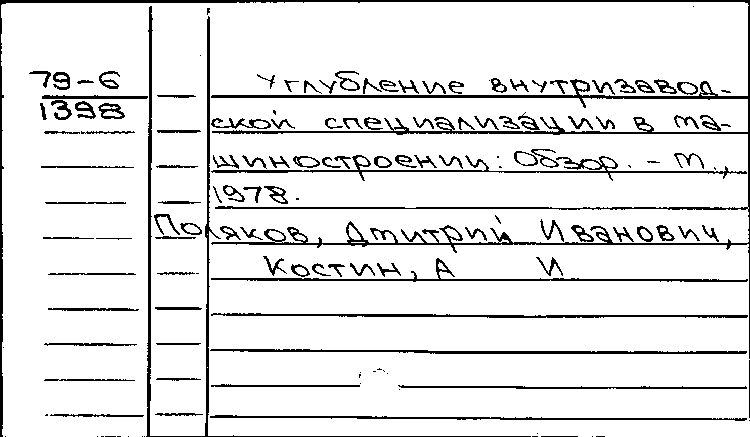 79-6
1398
Углубление внутризавод-
ской специализации в ма-
шиностроении: Обзор. - М.,
1978.
Поляков, Дмитрий Иванович,
Костин, А И